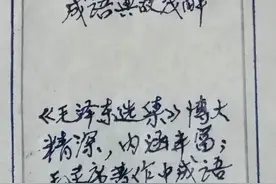 成语典故浅解
《毛泽东选集》博大
精深,内涵丰富;
毛主席著作中成语